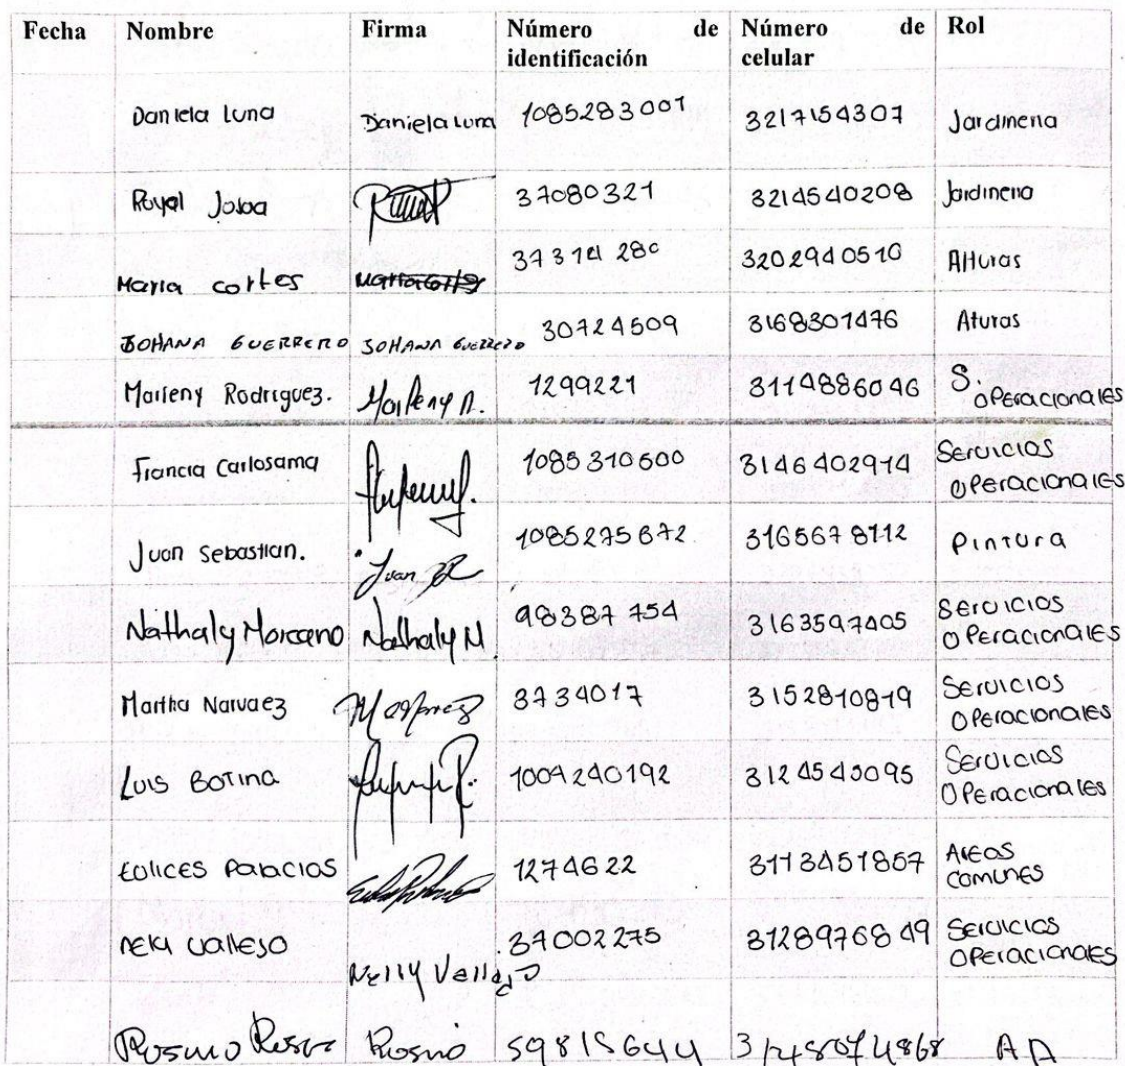 Fecha Nombre Firma Número de identificación Número de celular Rol
Daniela Luna Daniela Luna 1085283001 3217154307 Jardineria
37080321 3214540208 Jardineria
Maria cortes 3202940510 Alturas
JOHANA GUERRERO JOHANA GUERRERO 30724509 3168301476 Aturas
Marleny Rodriguez. Marleny R. 1299221 3114886046 S. operacionales
Francia Carlosama 1085310600 3146402914 Servicios operacionales
Juan Sebastian. Juan 1085275672 3165678112 Pintura
Nathaly Moreano Nathaly M. 98387754 3163597405 Servicios operacionales
Martha Narvaez 3734017 3152810819 Servicios operacionales
Luis Botina 1004240192 3124545095 Servicios operacionales
Palacios 1274622 3113451857 Areos comunes
Vallejo Nelly Vallejo 37002275 3128976849 Servicios operacionales
59815644 AA